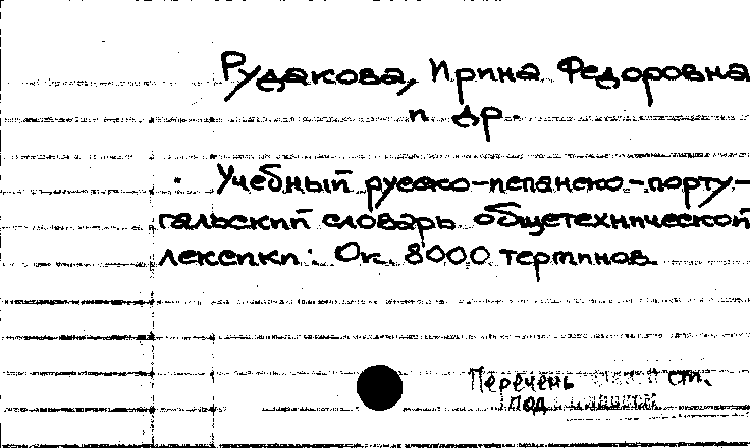 Рудакова, Ирина Федоровна
и др.
Учебный русско-испанско-порту-
гальский словарь общетехнической
лексики: Ок. 8000 терминов.
Перечень ст.
под